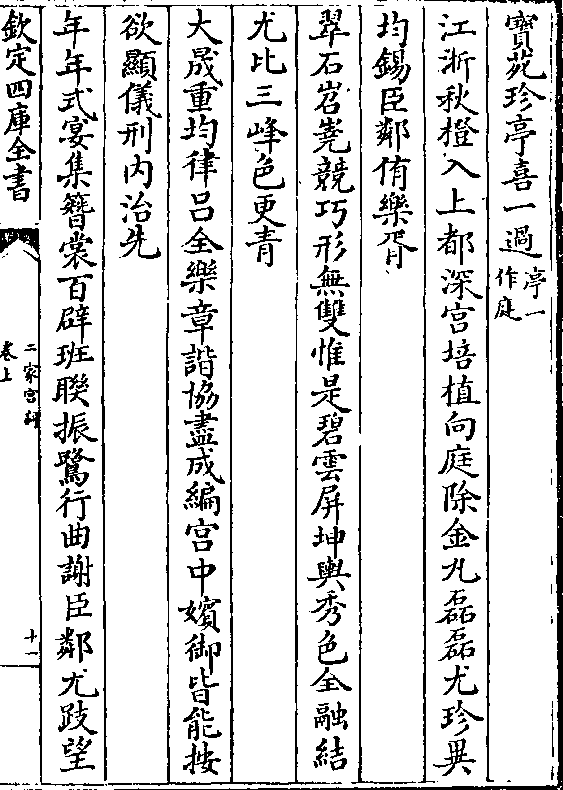 寶苑珍亭喜一過亭一作庭
江浙秋橙入上都深宮培植向庭除金丸磊磊尤珍異
均錫臣鄰侑樂胥
翠石岧嶤競巧形無雙惟是碧雲屏坤輿秀色全融結
尤比三峰色更青
大晟重均律呂全樂章諧協盡成編宮中嬪御皆能按
欲顯儀刑内治先
年年式宴集簪裳百辟班聯振鷺行曲謝臣鄰尤跂望
欽定四庫全書
二家宮詞
卷上
十一